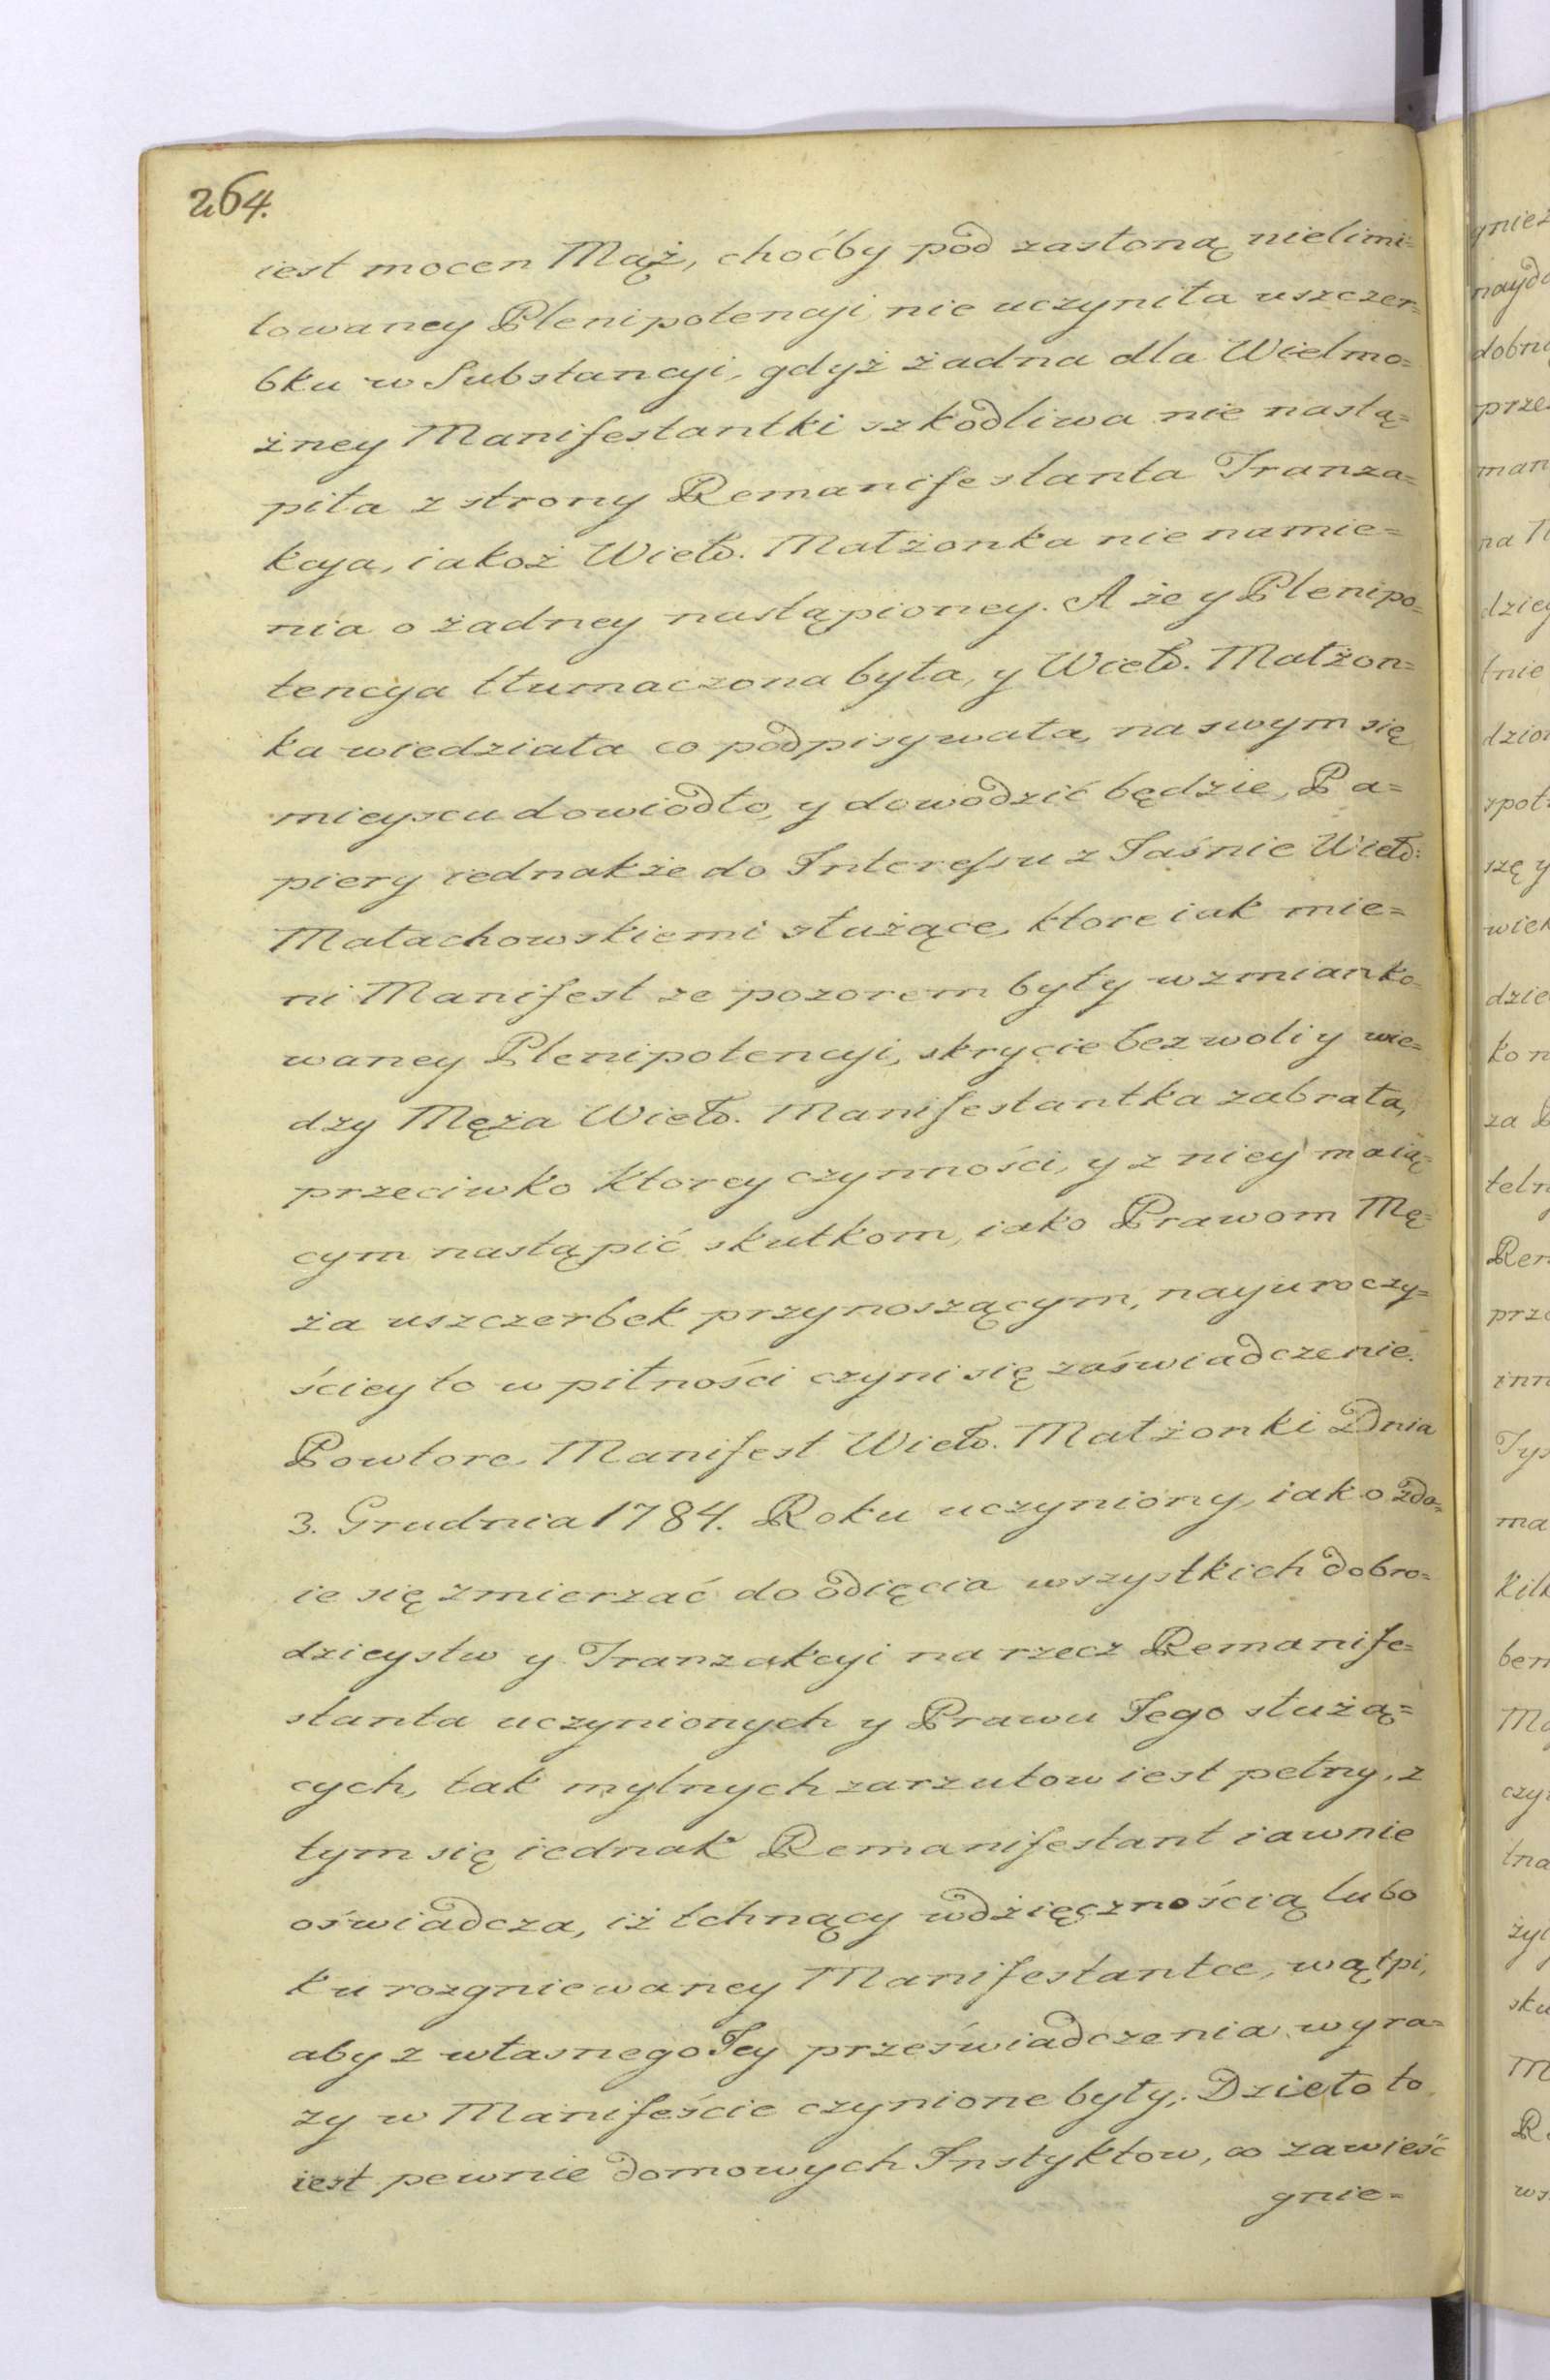 264.
iest mocen Mąż, choćby pod zasłoną nielimi=
towaney Plenipotencyi nie uczyniła uszczer=
bku w Substancyi, gdyż żadna dla Wielmo=
żney Manifestantki szkodliwa nie nastą=
piła z strony Remanifestanta Tranza=
kcya, iakoż Wielb. Małżonka nie namie=
nia o żadney nastąpioney. A że y Plenipo=
tencya tłumaczona była, y Wielb. Małżon=
ka wiedziała co podpisywała, na swym się
mieyscu dowiodło, y dowodzić będzie, Pa=
piery iednakże do Interessu z Jaśnie Wielb:
Małachowskiemi służące, ktore iak mie=
ni Manifest ze pozorem były wzmianko=
waney Plenipotencyi, skrycie bez woli y wie=
dzy Męża Wielb. Manifestantka zabrała,
przeciwko ktorey czynności, y z niey maią=
cym nastąpić skutkom, iako Prawom Mę=
ża uszczerbek przynoszącym, nayuroczy=
ściey to w pilności czyni się zaświadczenie.
Powtore Manifest Wielb. Małżonki Dnia
3. Grudnia 1784. Roku uczyniony, iako zda=
ie się zmierzać do odięcia wszystkich dobro=
dzieystw y Tranzakcyi na rzecz Remanife=
stanta uczynionych y Prawu Jego służą=
cych, tak mylnych zarzutow iest pełny, z
tym się iednak Remanifestant iawnie
oświadcza, iż tchnący wdzięcznością lubo
ku rozgniewaney Manifestantce, wątpi,
aby z własnego Jey przeświadczenia wyra=
zy w Manifeście czynione były; Dzieło to
iest pewnie domowych Instyktow, co zawieść
gnie=